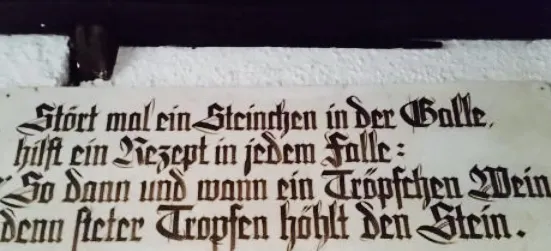 Stört mal ein Steinchen in der Galle,
hilft ein Rezept in jedem Falle:
"So dann und wann ein Tröpfchen Wein
denn steter Tropfen höhlt den Stein.